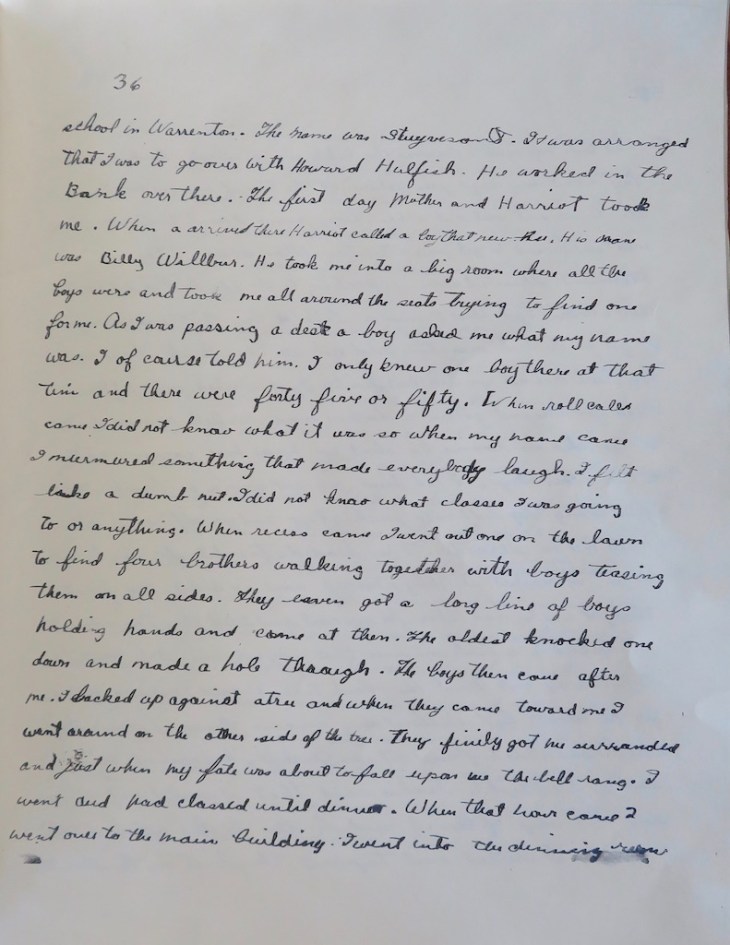 36
school in Warrenton. The name was Stuyvesant. It was arranged
that I was to go over with Howard Hulfish. He worked in the
Bank over there. The first day Mother and Harriot took
me. When a arrived there Harriot called a boy that new the. His name
was Billy Willbur. He took me into a big room where all the
boys were and took me all around the seats trying to find one
for me. As I was passing a desk a boy asked me what my name
was. I of course told him. I only knew one boy there at that
tim and there were forty five or fifty. When roll calls
came I did not know what it was so when my name came
I murmured something that made everybody laugh. I felt
like a dumb nut. I did not know what classes I was going
to or anything. When recess came I went out one on the lawn
to find four brothers walking together with boys teasing
them on all sides. They eaven got a long line of boys
holding hands and come at them. The oldest knocked one
down and made a hole through. The boys then came after
me. I backed up against a tree and when they came toward me I
went around on the other side of the tree. They finily got me surranded
and just when my fate was about to fall upon me the bell rang. I
went and had classed until dinner. When that hour came I
went over to the main building. I went into the dinning room